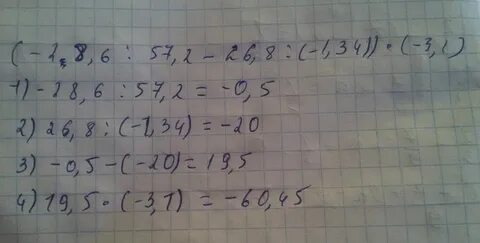 (-28,6 : 57,2 - 26,8 : (-1,34)) · (-3,1)
1) -28,6 : 57,2 = -0,5
2) 26,8 : (-1,34) = -20
3) -0,5 - (-20) = 19,5
4) 19,5 · (-3,1) = -60,45